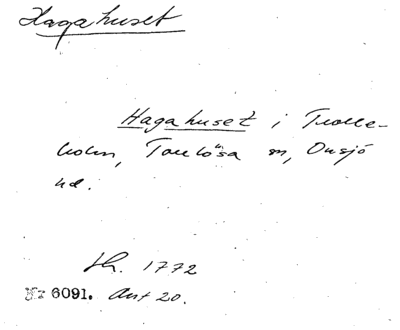 Hagahuset
Hagahuset i Trolle-
holm, Torrlösa sn, Onsjö
hd.
Hfl. 1772
Nr 6091. Ant 20.